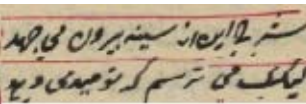 سنه این از سینه بیرون می جهد
لیک می ترسم که نومیدی دهد